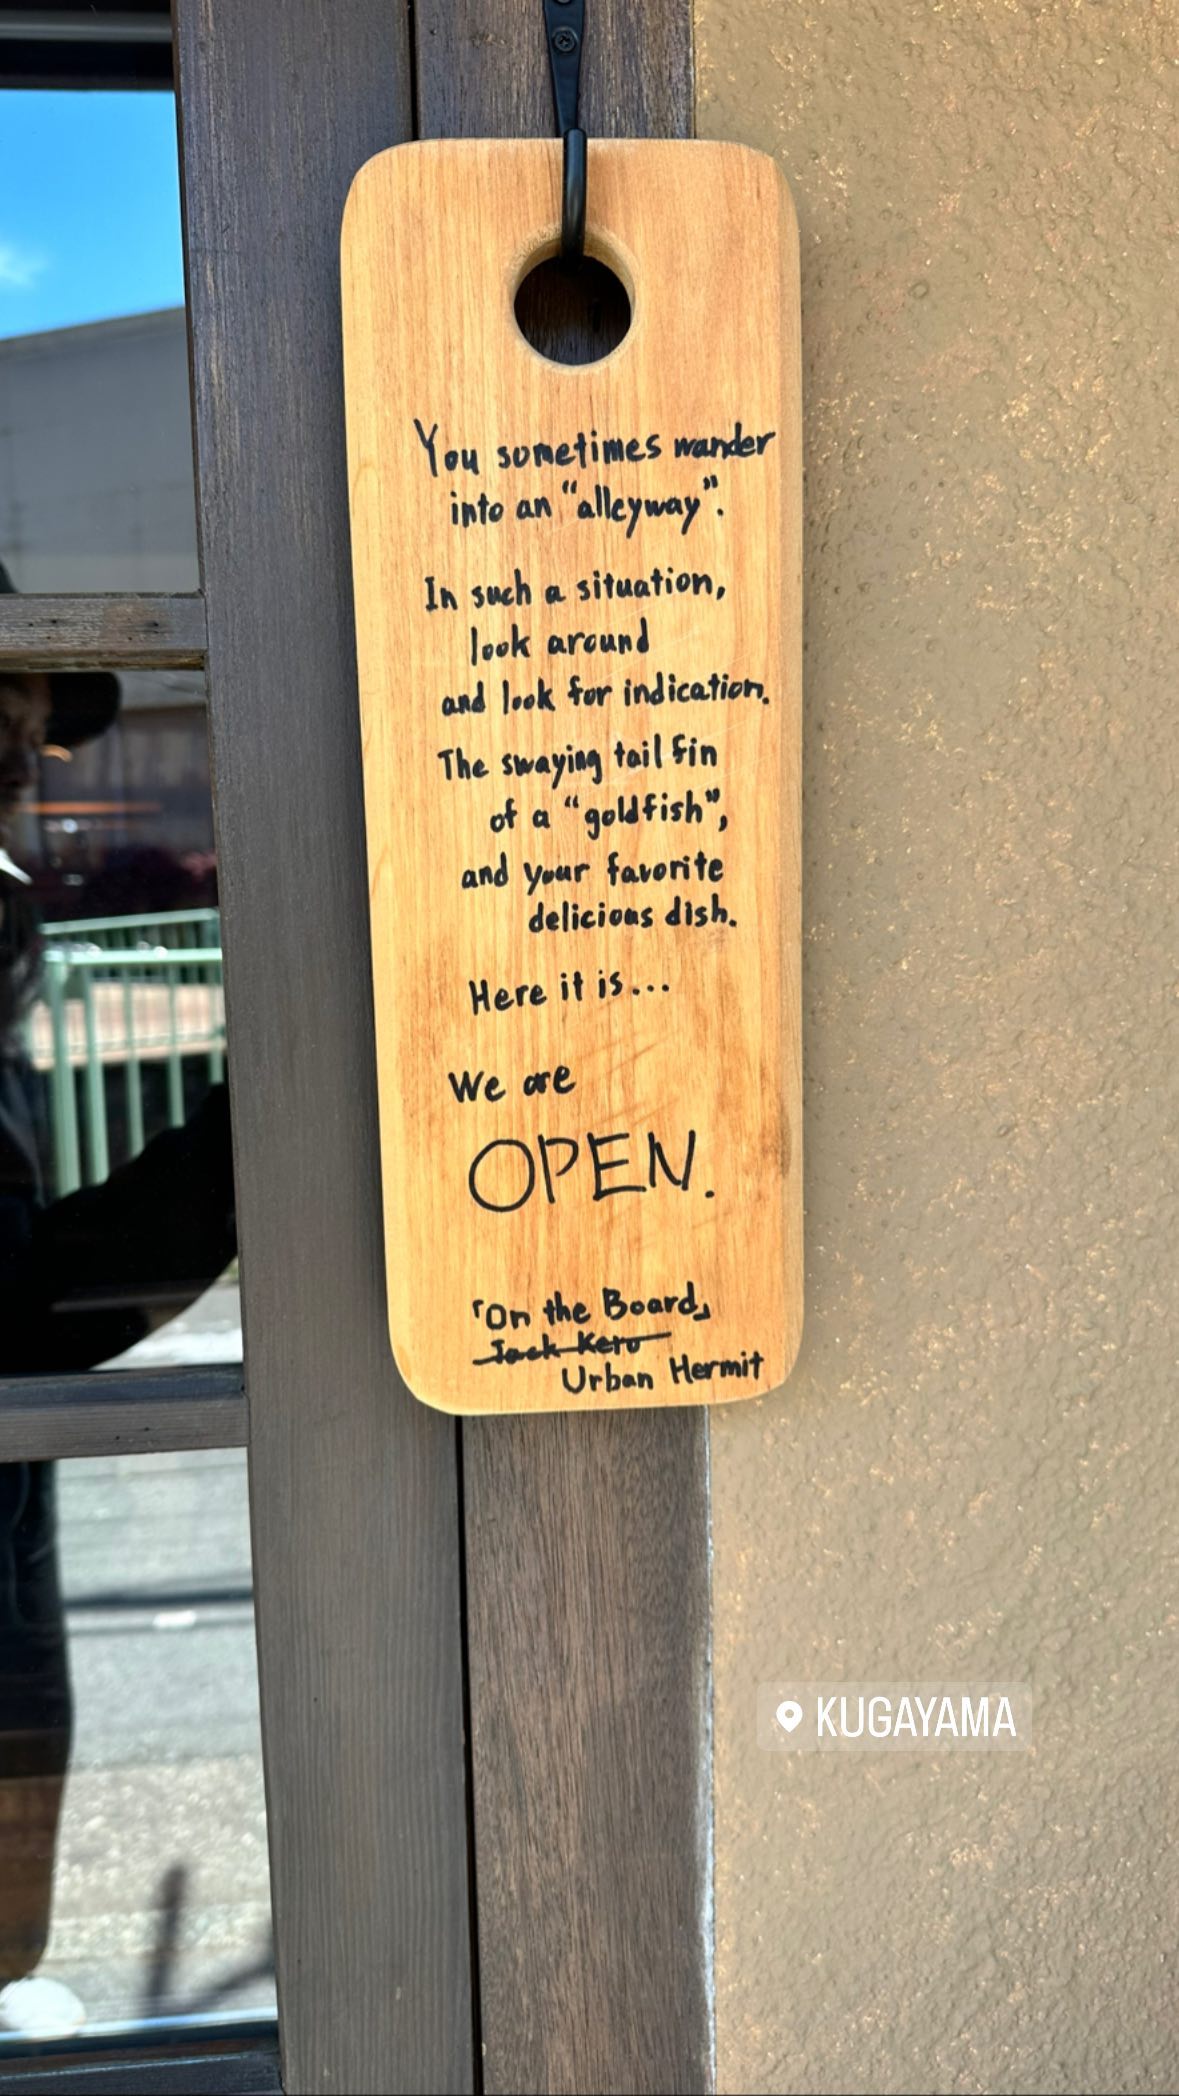 You sometimes wander
into an "alleyway".
In such a situation,
look around
and look for indication.
The swaying tail fin
of a "goldfish",
and your favorite
delicious dish.
Here it is...
We are
OPEN.
「On the Board」
Jack Kero
Urban Hermit
KUGAYAMA